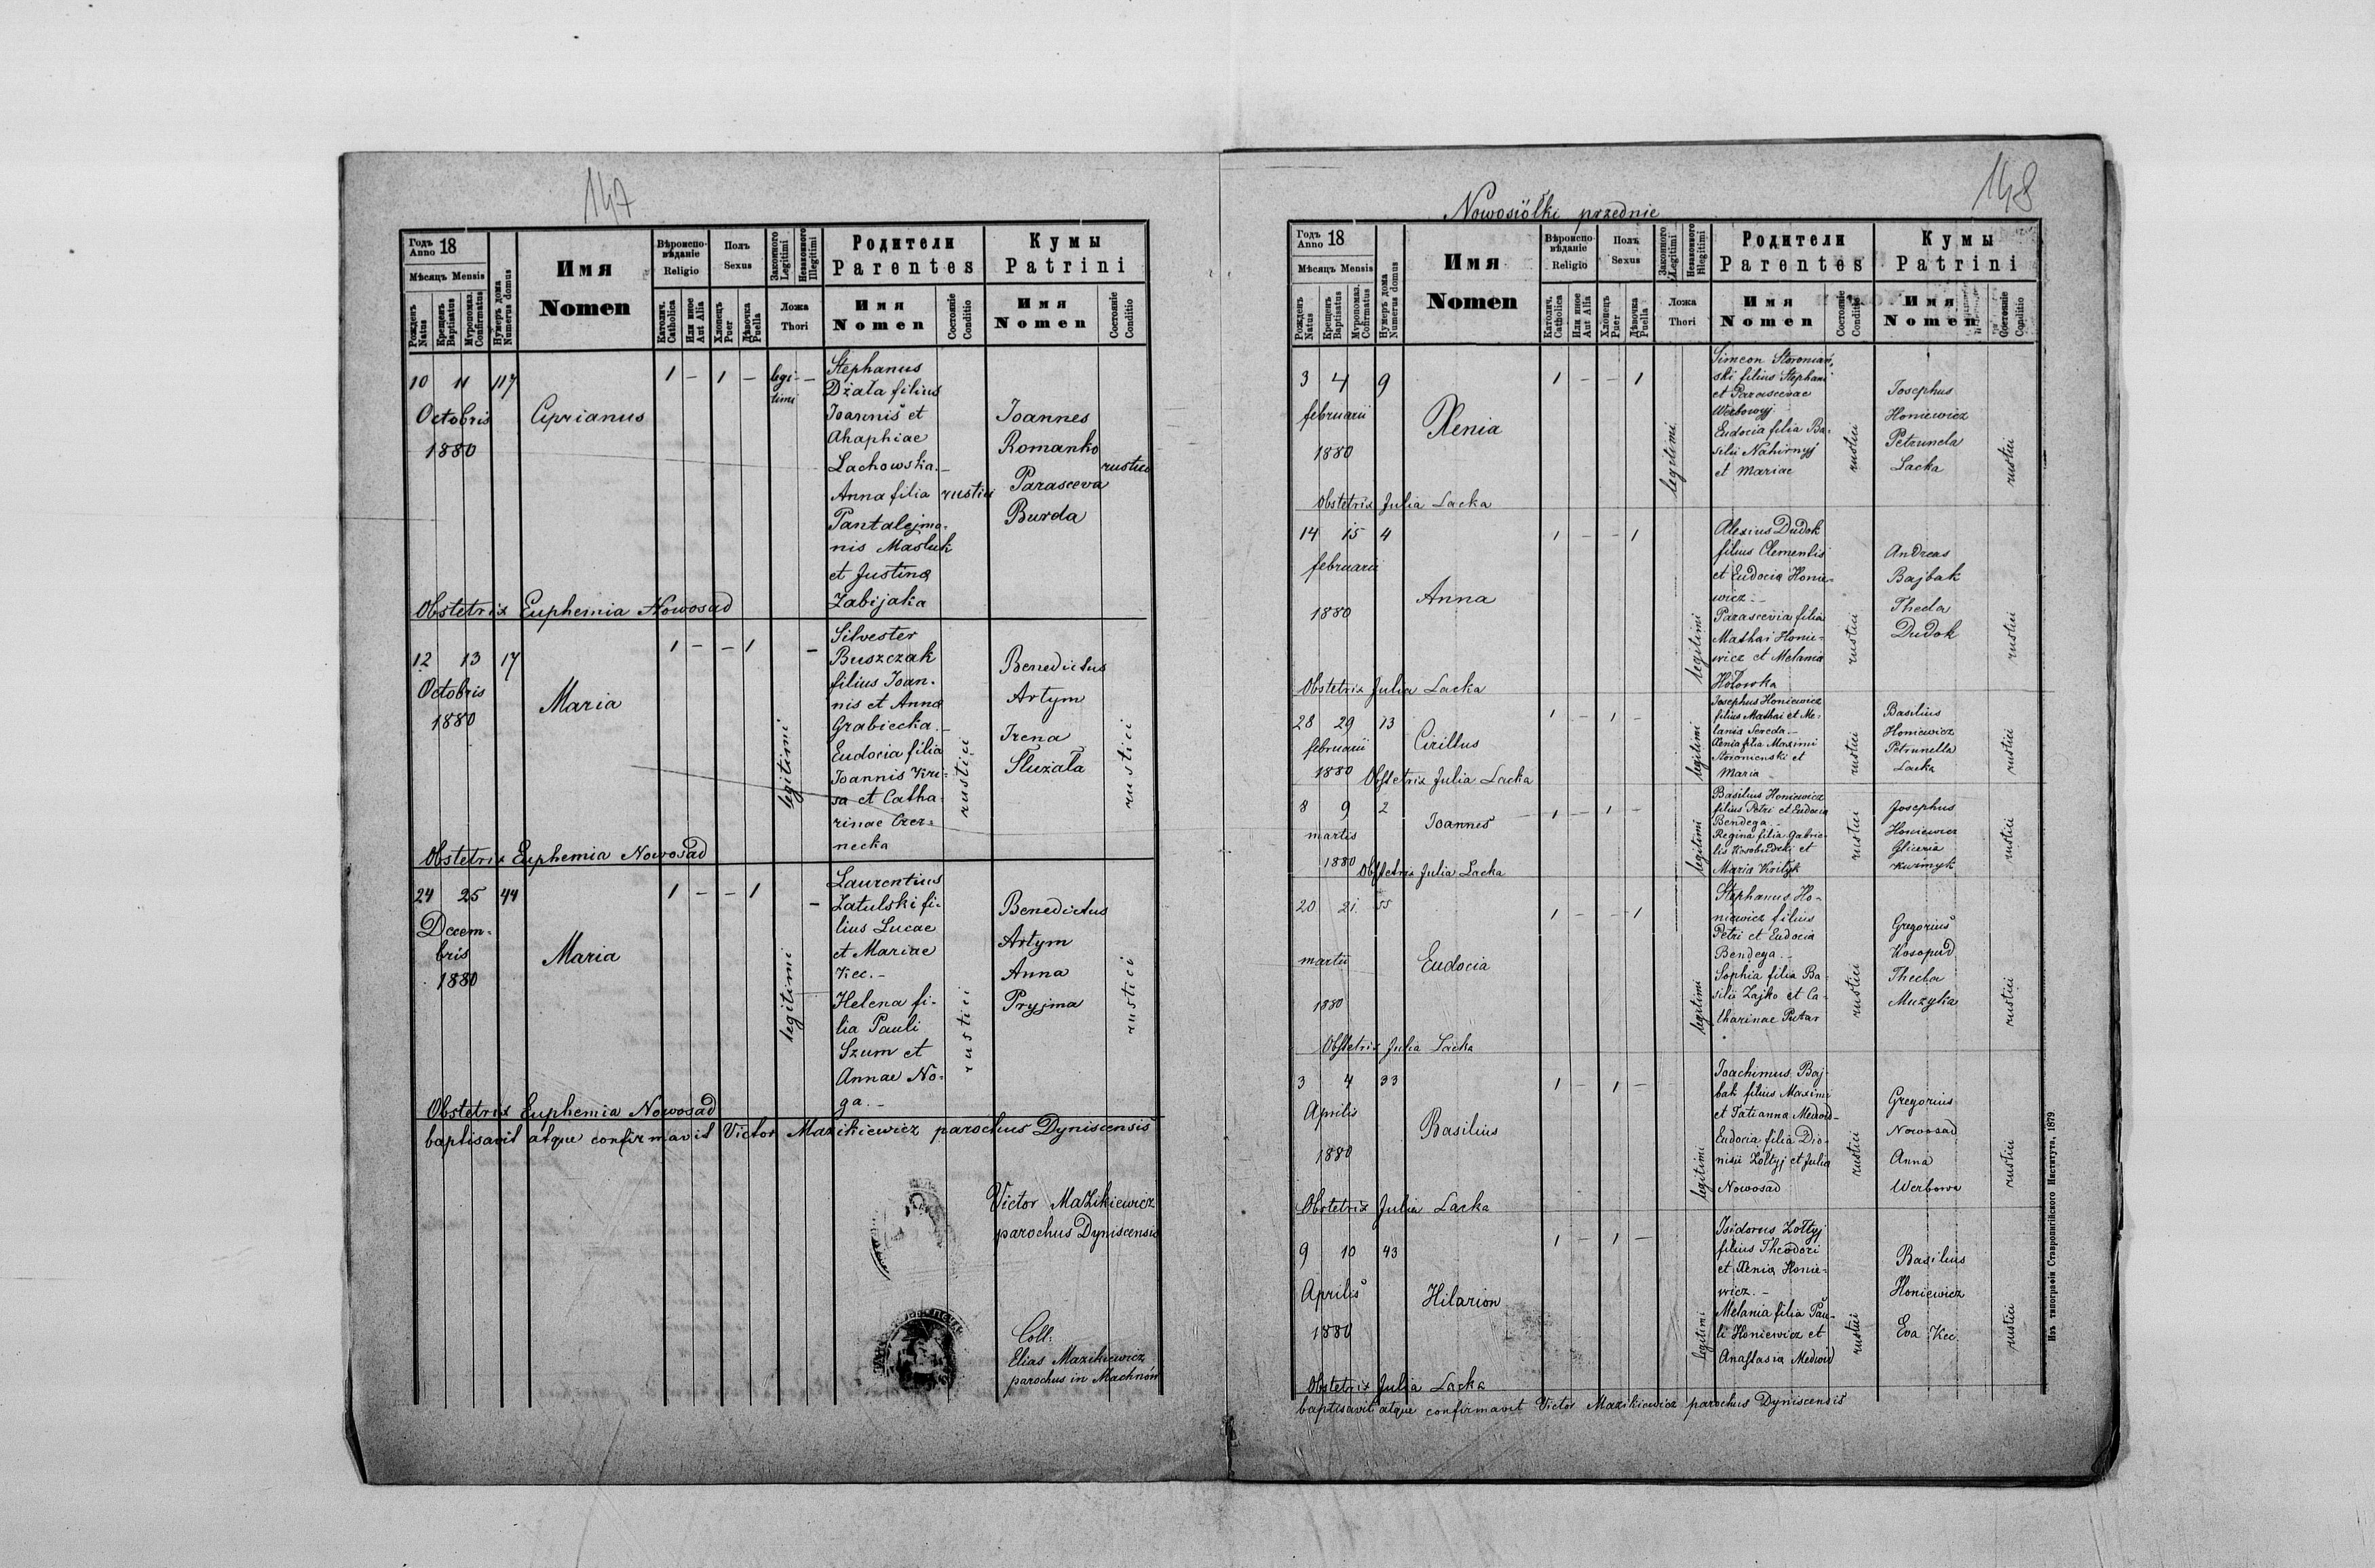 147
Годъ 18
Anno
Мѣсяцъ Mensis
Рожденъ Natus
Крещенъ Baptisatus
Мѵропомаз. Confirmatus
Нумеръ дома Numerus domus
Имя
Nomen
Вѣроиспо-
вѣданіе
Religio
Католич. Catholica
Или иное Aut Alia
Полъ
Sexus
Хлопецъ Puer
Дѣвочка Puella
Законного Legitimi
Незаконного Illegitimi
Ложа
Thori
Родители
Parentes
Имя
Nomen
Состояніе Conditio
Кумы
Patrini
Имя
Nomen
Состояніе Conditio
10 11 117
Octobris
1880
Ciprianus
1 – 1 –
legi-
timi
–
Stephanus
Dżała filius
Joannis et
Ahaphiae
Lachowska.–
Anna filia
Pantalejmo-
nis Masluk
et Justina
Zabijaka
rustici
Joannes
Romanko
Parasceva
Burda
rustici
Obstetrix Euphemia Nowosad
12 13 17
Octobris
1880
Maria
1 – – 1
legitimi
–
Silvester
Buszczak
filius Joan-
nis et Anna
Grabiecka.–
Eudocia filia
Joannis Kri-
sa et Catha-
rinae Czer-
necka
rustici
Benedictus
Artym
Irena
Służała
rustici
Obstetrix Euphemia Nowosad
24 25 44
Decem-
bris
1880
Maria
1 – – 1
legitimi
–
Laurentius
Zatulski fi-
lius Lucae
et Mariae
Kec.–
Helena fi-
lia Pauli
Szum et
Annae No-
ga.–
rustici
Benedictus
Artym
Anna
Pryjma
rustici
Obstetrix Euphemia Nowosad
baptisavit atque confirmavit Victor Mazikiewicz parochus Dyniscensis
Victor Mazikiewicz
parochus Dyniscensis
Coll:
Elias Mazikiewicz
parochus in Machnów
148
Nowosiółki przednie
Годъ 18
Anno
Мѣсяцъ Mensis
Рожденъ Natus
Крещенъ Baptisatus
Мѵропомаз. Cofirmatus
Нумеръ дома Numerus domus
Имя
Nomen
Вѣроиспо-
вѣданіе
Religio
Католич. Catholica
Или иное Aut Alia
Полъ
Sexus
Хлопецъ Puer
Дѣвочка Puella
Законного Legitimi
Незаконного Illegitimi
Ложа
Thori
Родители
Parentes
Имя
Nomen
Состояніе Conditio
Кумы
Patrini
Имя
Nomen
Состояніе Conditio
3 4 9
februarii
1880
Xenia
1 – – 1
legitimi
Simeon Storoniań-
ski filius Stephani
et Parascevae
Werbowyj
Eudocia filia Ba-
silii Nahirnyj
et Mariae
rustici
Josephus
Honiewicz
Petrunela
Lacka
rustici
Obstetrix Julia Lacka
14 15 4
februarii
1880
Anna
1 – – 1
legitimi
Alexius Dudok
filius Clementis
et Eudocia Honie-
wicz.–
Parascevia filia
Mathai Honie-
wicz et Melania
Hołowka
rustici
Andreas
Bajbak
Thecla
Dudok
rustici
Obstetrix Julia Lacka
28 29 13
februarii
1880
Cirillus
1 – 1 –
legitimi
Josephus Honiewicz
filius Mathai et Me-
lania Sereda.–
Xenia filia Maximi
Storonienski et
Maria
rustici
Basilius
Honiewicz
Petrunella
Lacka
rustici
Obstetrix Julia Lacka
8 9 2
martis
1880
Joannes
1 – 1 –
legitimi
Basilius Honiewicz
filius Petri et Eudocia
Bendega.–
Regina filia Gabrie-
lis Korobudzki et
Maria Kirilyk
rustici
Josephus
Honiewicz
Gliceria
Kuźmyk
rustici
Obstetrix Julia Lacka
20 21 55
martii
1880
Eudocia
1 – – 1
legitimi
Stephanus Ho-
niewicz filius
Petri et Eudocia
Bendega.–
Sophia filia Ba-
silii Zajko et Ca-
tharinae Putar
rustici
Gregorius
Kosopud
Thecla
Muzyka
rustici
Obstetrix Julia Lacka
3 4 33
Aprilis
1880
Basilius
1 – 1 –
legitimi
Joachimus Baj-
bak filius Maximi
et Tatianna Medwid–
Eudocia filia Dio-
nisii Zołtyj et Julia
Nowosad
rustici
Gregorius
Nowosad
Anna
Werbowa
rustici
Obstetrix Julia Lacka
9 10 43
Aprilis
1880
Hilarion
1 – 1 –
legitimi
Isidorus Zołtyj
filius Theodori
et Xenia Honie-
wicz.–
Melania filia Pau-
li Honiewicz et
Anastasia Medwid
rustici
Basilius
Honiewicz
Eva Kec
rustici
Obstetrix Julia Lacka
baptisavit atque confirmavit Victor Mazikiewicz parochus Dyniscensis
Изъ типографіи Ставропигійского Института, 1879